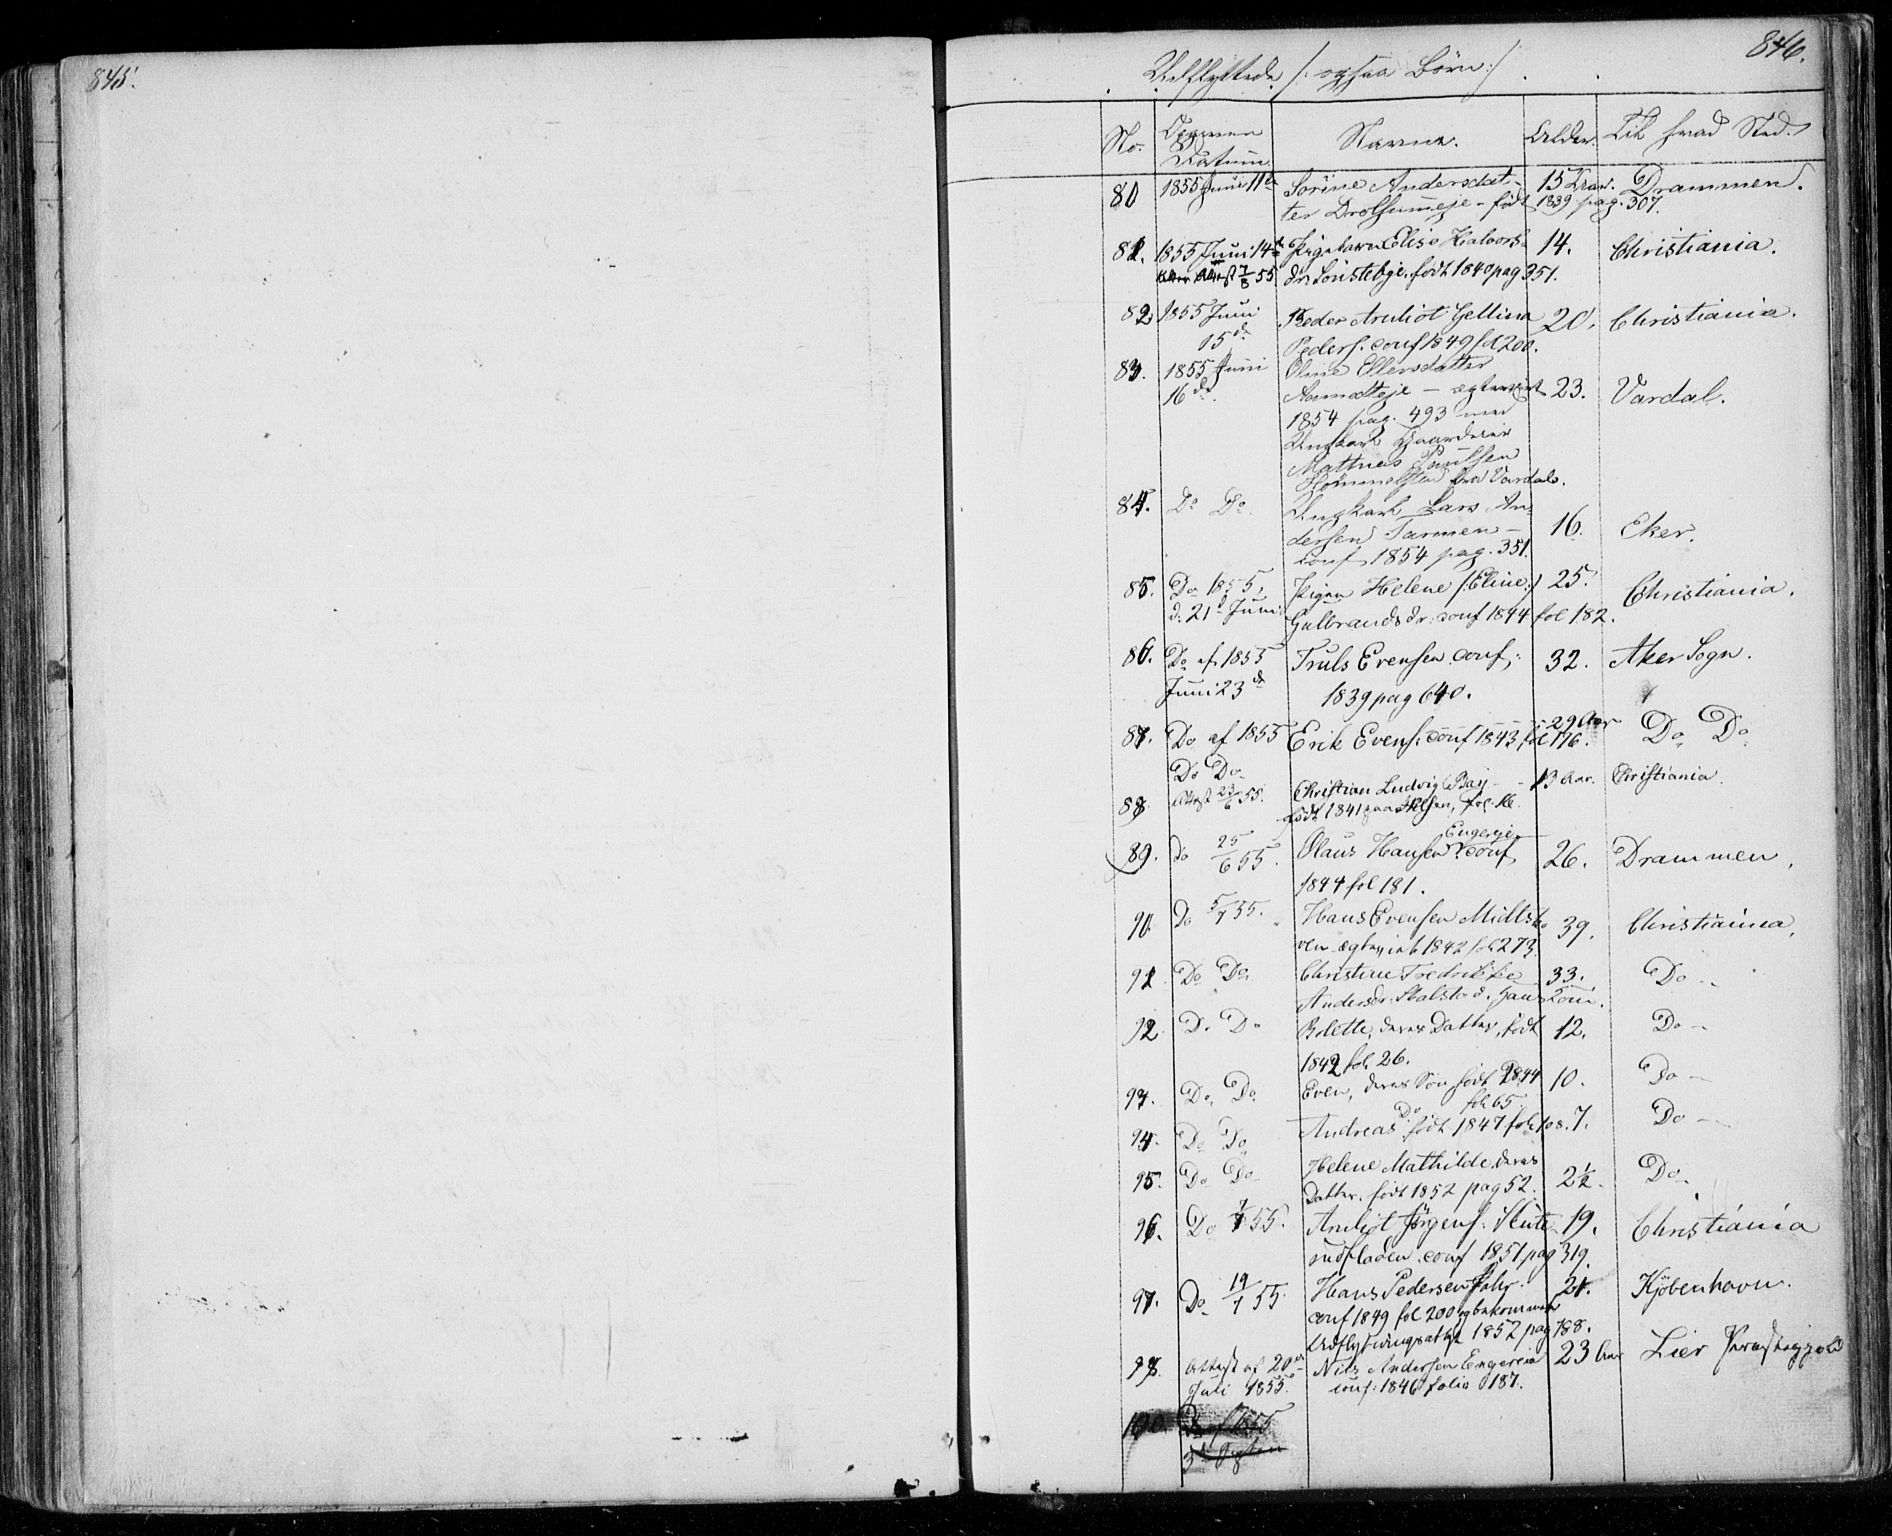 845.
846.
Udflyttede /: ogsaa Børn :/
No. Datum. Navne. Alder. Til hvad Sted.
80 1855 Juni 11te Sørine Andersdat- 15 Drammen.
ter født 1839 pag. 307.
81. 1855 Juni 14de Pigebarn Elise Halvors- 14. Christiania.
7/8 55 dr. født 1840 pag 351.
82. 1855 Juni Peder Aruliot Gellina 20. Christiania.
15de Peders. conf 1849 fol 200.
83. 1855 Juni Oline Ellersdatter
16de Aamotteje - ægteviet 23. Vardal.
1854 pag. 493 med
Ungkarl Gaardeier
Mathias Paulsen
fra Vardal.
84. Do Do Ungkarl Lars An-
dersen Tarmen - 16. Eker.
conf 1854 pag. 351.
85. Do 1855, Pigen Helene /:Eline:/ 25. Christiania.
d. 21de Juni Gulbrandsdr: conf 1844 fol 182.
86. Do af 1855 Truls Evensen conf: 32. Aker Sogn.
Juni 23de 1839 pag 640.
87. Do af 1855 Erik Evens: conf 1843 fol 176. 29 Aar Do Do
Do Do
88. Attest 23/6 55. Christian Ludvig Bay - 13 Aar. Christiania.
født 1841 fol. 16.
Engereje
89. do 25/6 55. Olaus Hansen conf 26. Drammen.
1844 fol 181.
90. Do 5/7 55. Hans Evensen 39. Christiania.
ægteviet 1842 fol 273.
91 Do Do Christine Fredrikke 33. Do
Andersdr: Hans Kone.
92 Do Do Bolette, deres Datter, født 12. Do -
1842 fol. 26.
93. Do Do Even, deres Søn født 1844 10. Do -
fol 65.
94. Do Do Andreas Do født 1847 fol 108. 7. Do -
95. Do Do Helene Mathilde, deres
Datter. født 1852 pag 52. 2½. Do
96. Do 7/7 55. Aruliot Jørgens: 19. Christiania
conf 1851 pag 319.
97. Do 19/7 55. Hans Pedersen 21. Kjøbenhavn.
conf 1849 fol 200 og bekommet
Udflytningsattest 1852 pag 788.
98. Attest af 20de Nils Andersen Engereie 23 Aar Lier Præstegjeld
Juli 1855. conf: 1846 folio 187.
100. Do af 1855